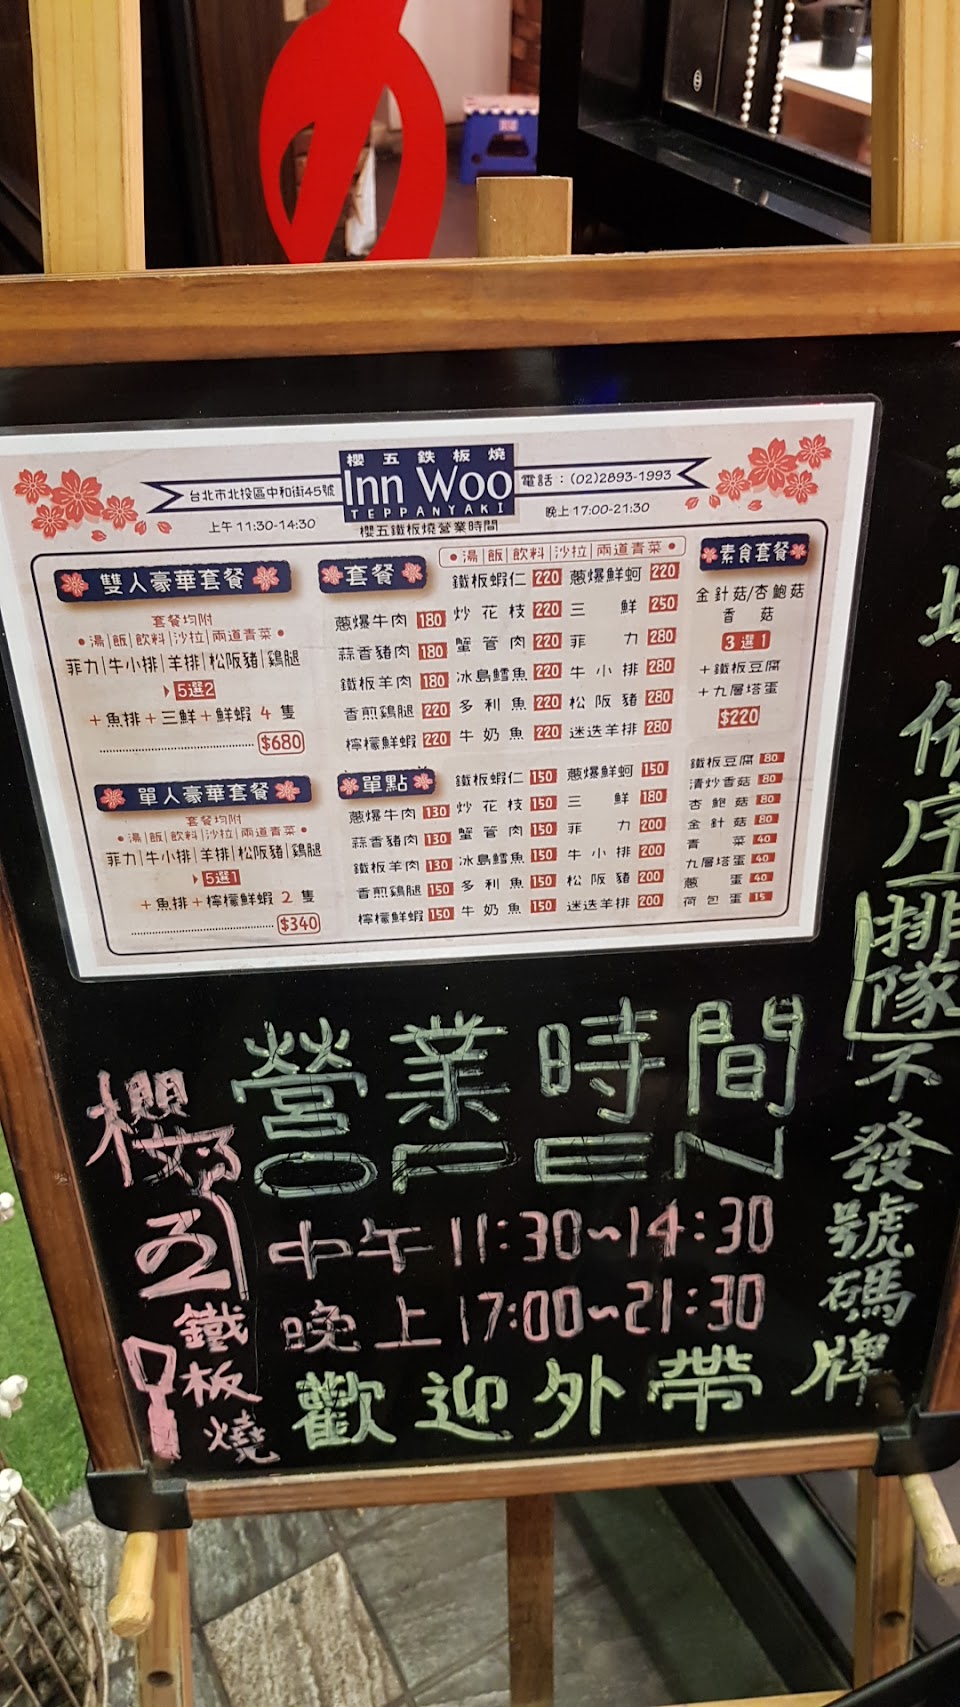 櫻五鉄板燒
Inn Woo
TEPPANYAKI
台北市北投區中和街45號
電話：(02)2893-1993
上午 11:30-14:30
櫻五鐵板燒營業時間
晚上 17:00-21:30
雙人豪華套餐
套餐均附
•湯|飯|飲料|沙拉|兩道青菜•
菲力|牛小排|羊排|松阪豬|雞腿
5選2
+魚排+三鮮+鮮蝦 4 隻
$680
單人豪華套餐
套餐均附
•湯|飯|飲料|沙拉|兩道青菜•
菲力|牛小排|羊排|松阪豬|雞腿
5選1
+魚排+檸檬鮮蝦 2 隻
$340
套餐
•湯|飯|飲料|沙拉|兩道青菜•
蔥爆牛肉 180
蒜香豬肉 180
鐵板羊肉 180
香煎雞腿 220
檸檬鮮蝦 220
鐵板蝦仁 220
炒花枝 220
蟹管肉 220
冰島鱈魚 220
多利魚 220
牛奶魚 220
蔥爆鮮蚵 220
三鮮 250
菲力 280
牛小排 280
松阪豬 280
迷迭羊排 280
單點
蔥爆牛肉 130
蒜香豬肉 130
鐵板羊肉 130
香煎雞腿 150
檸檬鮮蝦 150
鐵板蝦仁 150
炒花枝 150
蟹管肉 150
冰島鱈魚 150
多利魚 150
牛奶魚 150
蔥爆鮮蚵 150
三鮮 180
菲力 200
牛小排 200
松阪豬 200
迷迭羊排 200
素食套餐
金針菇/杏鮑菇
香菇
3選1
+鐵板豆腐
+九層塔蛋
$220
鐵板豆腐 80
清炒香菇 80
杏鮑菇 80
金針菇 80
青菜 40
九層塔蛋 40
蔥蛋 40
荷包蛋 15
營業時間
OPEN
中午 11:30~14:30
晚上 17:00~21:30
歡迎外帶
櫻五鐵板燒
依序排隊不發號碼牌